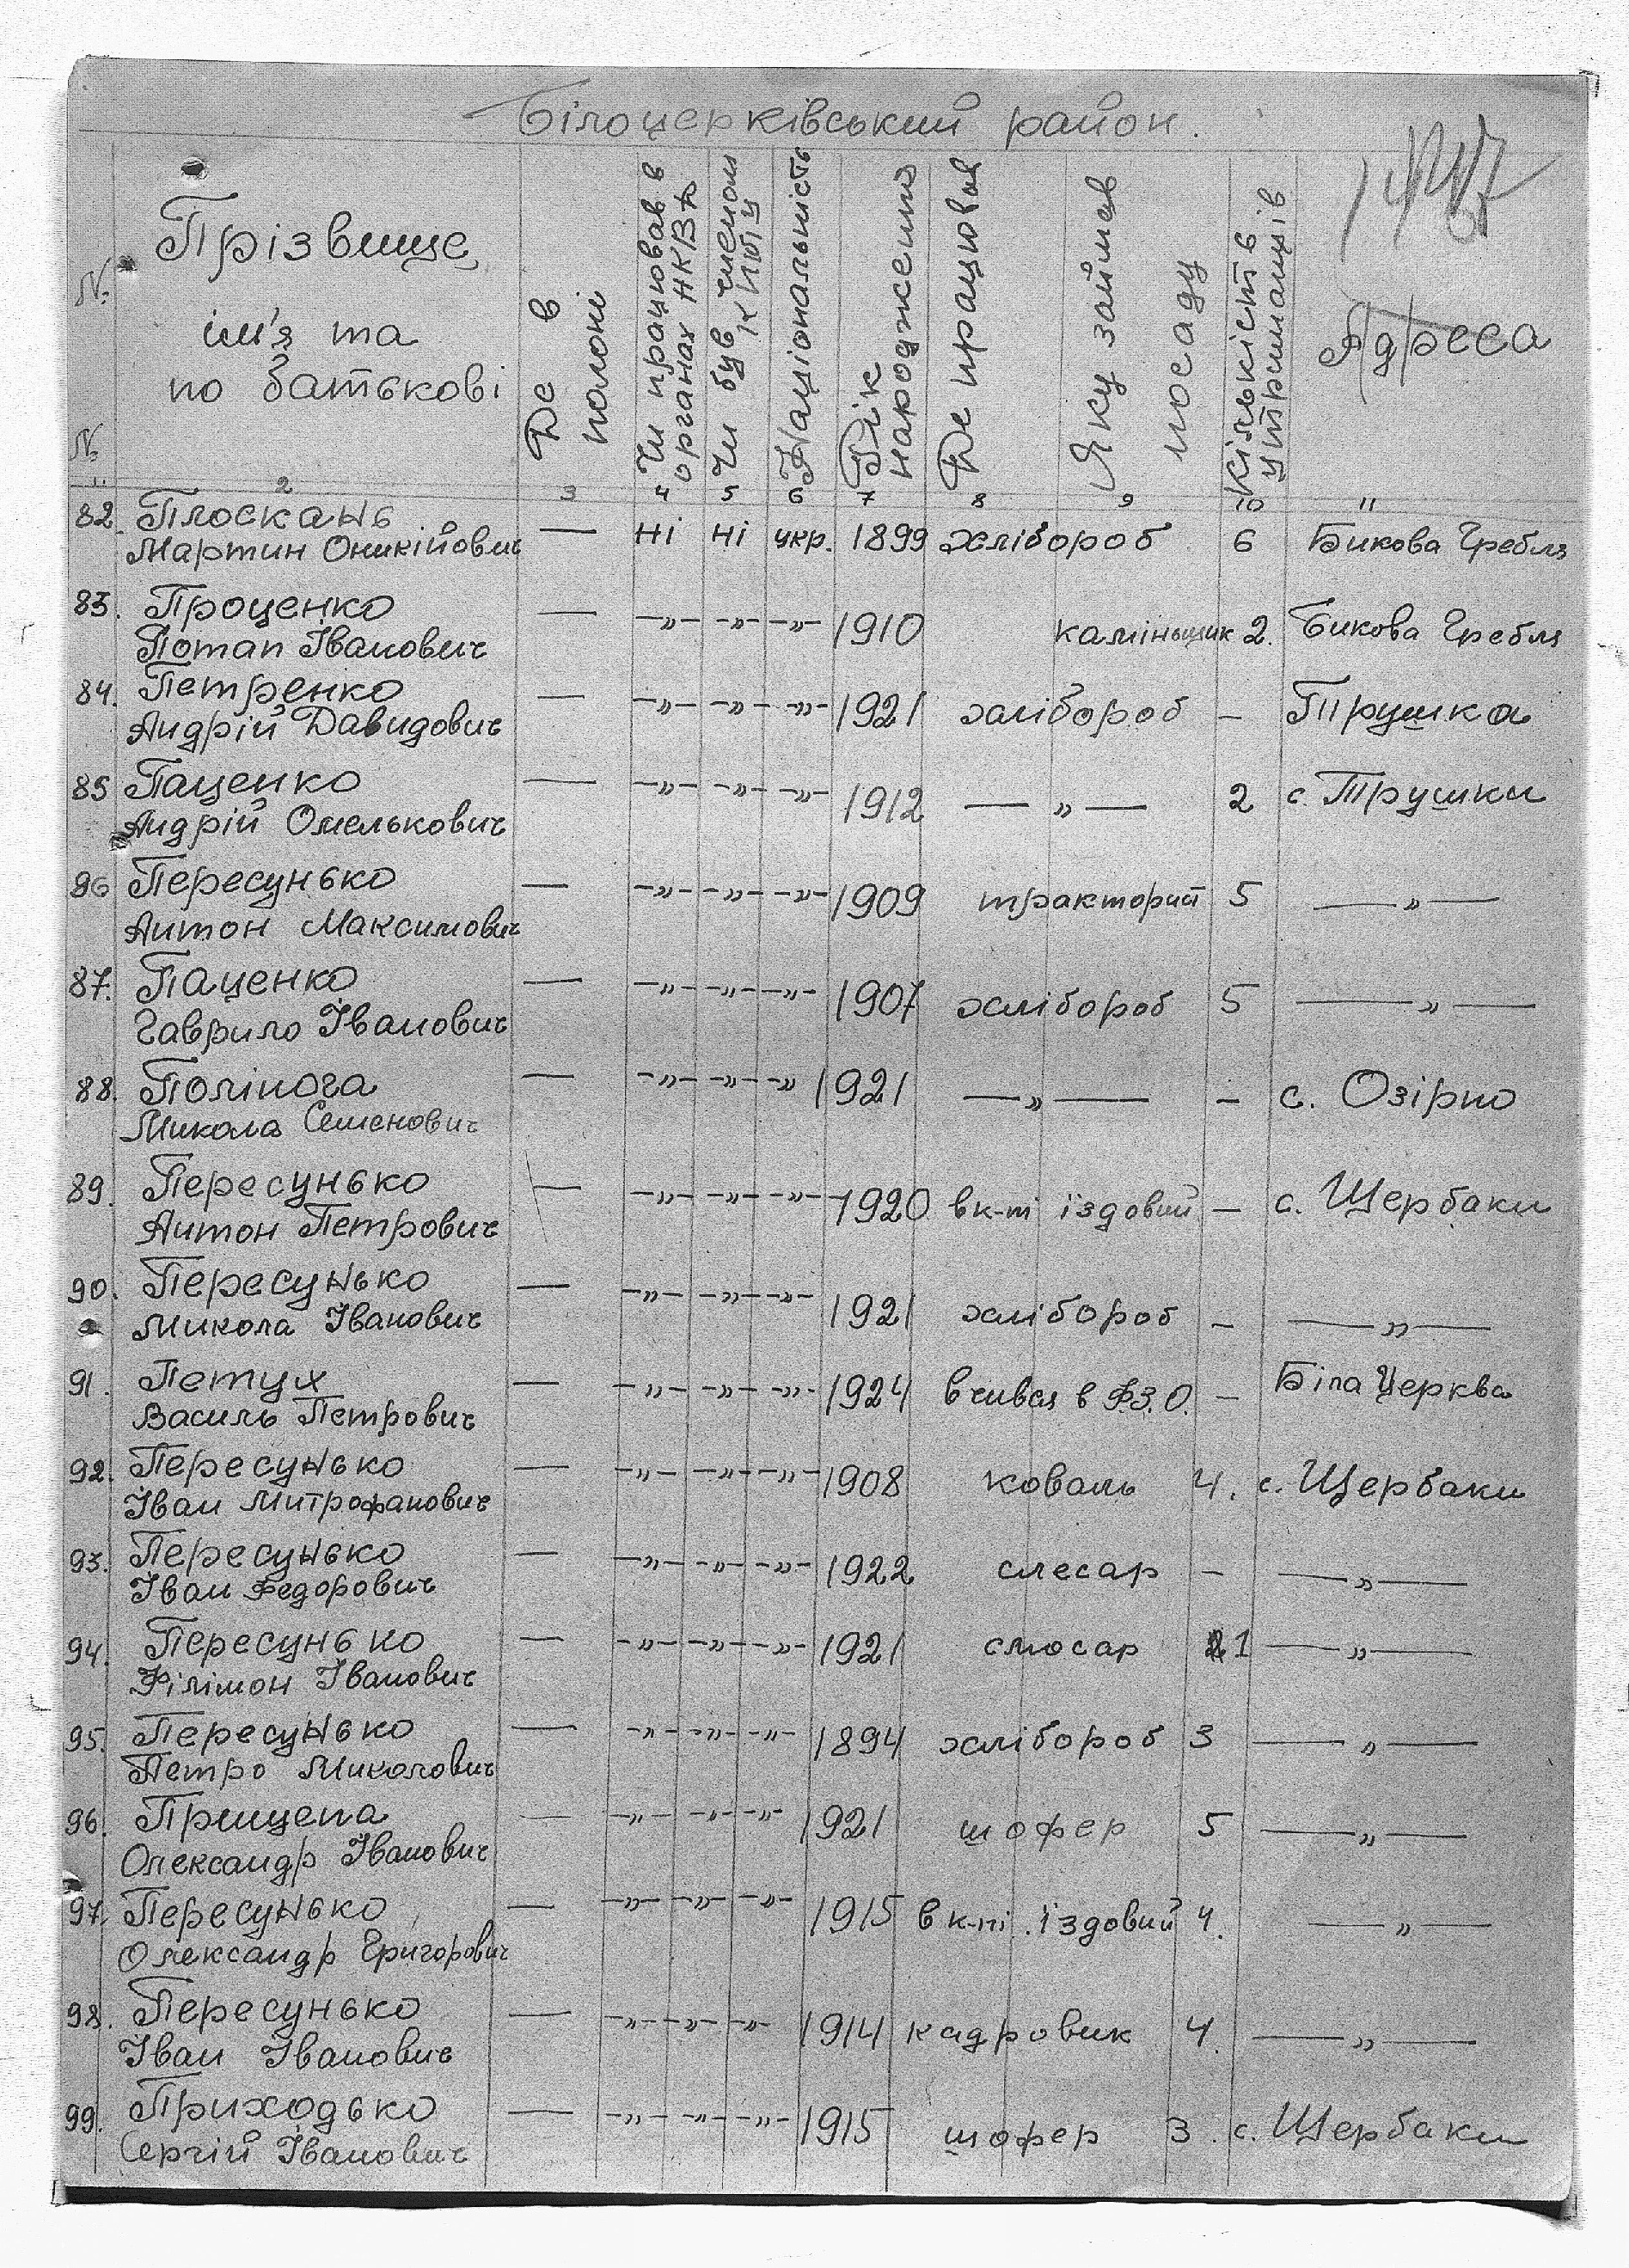 Білоцерківський район.
147
№№
Прізвище, ім'я та по батькові
Де в полоні
Чи працював в органах НКВД
Чи був членом К П(б)У
Національність
Рік народження
Де працював
Яку займав посаду
Кількість утриманців
Адреса
1 2 3 4 5 6 7 8 9 10 11
82. Плоскань — Ні Ні укр. 1899 хлібороб 6 Бикова Гребля
Мартин Оникійович
83. Проценко — —„— —„— —„— 1910 камінщик 2. Бикова Гребля
Потап Іванович
84. Петренко — —„— —„— —„— 1921 хлібороб — Трушка
Андрій Давидович
85 Паценко — —„— —„— —„— 1912 —„— 2 с. Трушки
Андрій Омелькович
86 Пересунько — —„— —„— —„— 1909 тракторист 5 —„—
Антон Максимович
87. Паценко — —„— —„— —„— 1907 хлібороб 5 —„—
Гаврило Іванович
88. Полінога — —„— —„— —„ 1921 —„— — с. Озірно
Микола Семенович
89. Пересунько — —„— —„— —„— 1920 в к-пі їздовий — с. Щербаки
Антон Петрович
90. Пересунько — —„— —„— —„— 1921 хлібороб — —„—
Микола Іванович
91. Петух — —„— —„— —„— 1924 вчився в Ф.З.О. — Біла Церква
Василь Петрович
92. Пересунько — —„— —„— —„— 1908 коваль 4. с. Щербаки
Іван Митрофанович
93. Пересунько — —„— —„— —„— 1922 слесар — —„—
Іван Федорович
94. Пересунько — —„— —„— —„— 1921 слюсар 1 —„—
Філімон Іванович
95. Пересунько — —„— —„— —„— 1894 хлібороб 3 —„—
Петро Миколович
96. Прищепа — —„— —„— —„— 1921 шофер 5 —„—
Олександр Іванович
97. Пересунько — —„— —„— —„— 1915 в к-пі їздовий 4. —„—
Олександр Григорович
98. Пересунько — —„— —„— —„— 1914 кадровик 4. —„—
Іван Іванович
99. Приходько — —„— —„— —„— 1915 шофер 3. с. Щербаки
Сергій Іванович